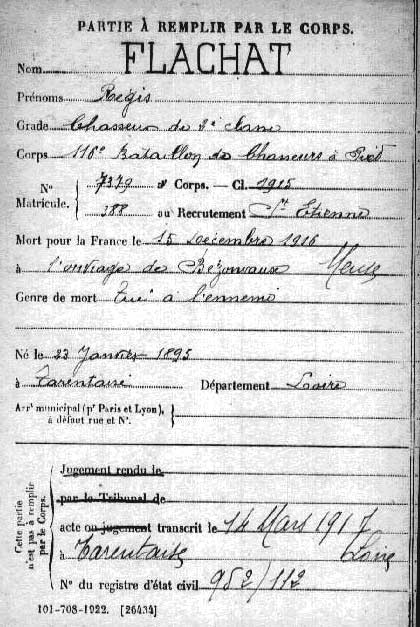 PARTIE À REMPLIR PAR LE CORPS.
FLACHAT
Nom
Prénoms Régis
Grade Chasseur de 2e classe
Corps 116e Bataillon de Chasseurs à Pied
N° Matricule. { 7379 au Corps. — Cl. 1915
188 au Recrutement St Etienne
Mort pour la France le 15 Décembre 1916
à l'ouvrage de Bezonvaux Meuse
Genre de mort Tué à l'ennemi
Né le 23 Janvier 1895
à Tarentaise Département Loire
Arrt municipal (pr Paris et Lyon), à défaut rue et N°. }
Cette partie n'est pas à remplir par le Corps.
Jugement rendu le
par le Tribunal de
acte ou jugement transcrit le 14 Mars 1917
à Tarentaise Loire
N° du registre d'état civil 952/112
101-708-1922. [26434]